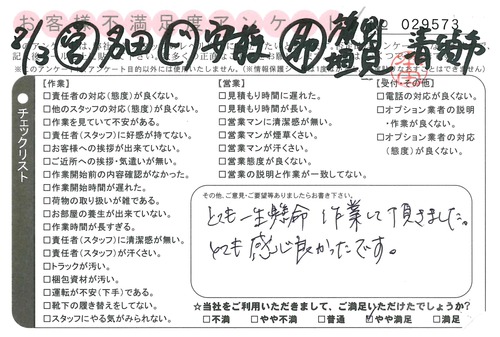 お客様不満足度アンケート
NO 029573
2/13
チェックリスト
【作業】
□責任者の対応(態度)が良くない。
□他のスタッフの対応(態度)が良くない。
□作業を見ていて不安がある。
□責任者(スタッフ)に好感が持てない。
□お客様への挨拶が出来ていない。
□ご近所への挨拶・気遣いが無い。
□作業開始前の内容確認がなかった。
□作業開始時間が遅れた。
□荷物の取り扱いが雑である。
□お部屋の養生が出来ていない。
□作業時間が長すぎる。
□責任者(スタッフ)に清潔感が無い。
□責任者(スタッフ)が汗くさい。
□トラックが汚い。
□梱包資材が汚い。
□運転が不安(下手)である。
□靴下の履き替えをしてない。
□スタッフにやる気がみられない。
【営業】
□見積もり時間に遅れた。
□見積もり時間が長い。
□営業マンに清潔感が無い。
□営業マンが煙草くさい。
□営業マンが汗くさい。
□営業態度が良くない。
□営業の説明と作業が一致してない。
【受付・その他】
□電話の対応が良くない。
□オプション業者の説明
・作業が良くない。
□オプション業者の対応
(態度)が良くない。
その他、ご意見・ご要望等ありましたらお書き下さい。
とても一生懸命作業して頂きました。
とても感じ良かったです。
☆当社をご利用いただきまして、ご満足いただけたでしょうか?
□不満 □やや不満 □普通 ☑やや満足 □満足